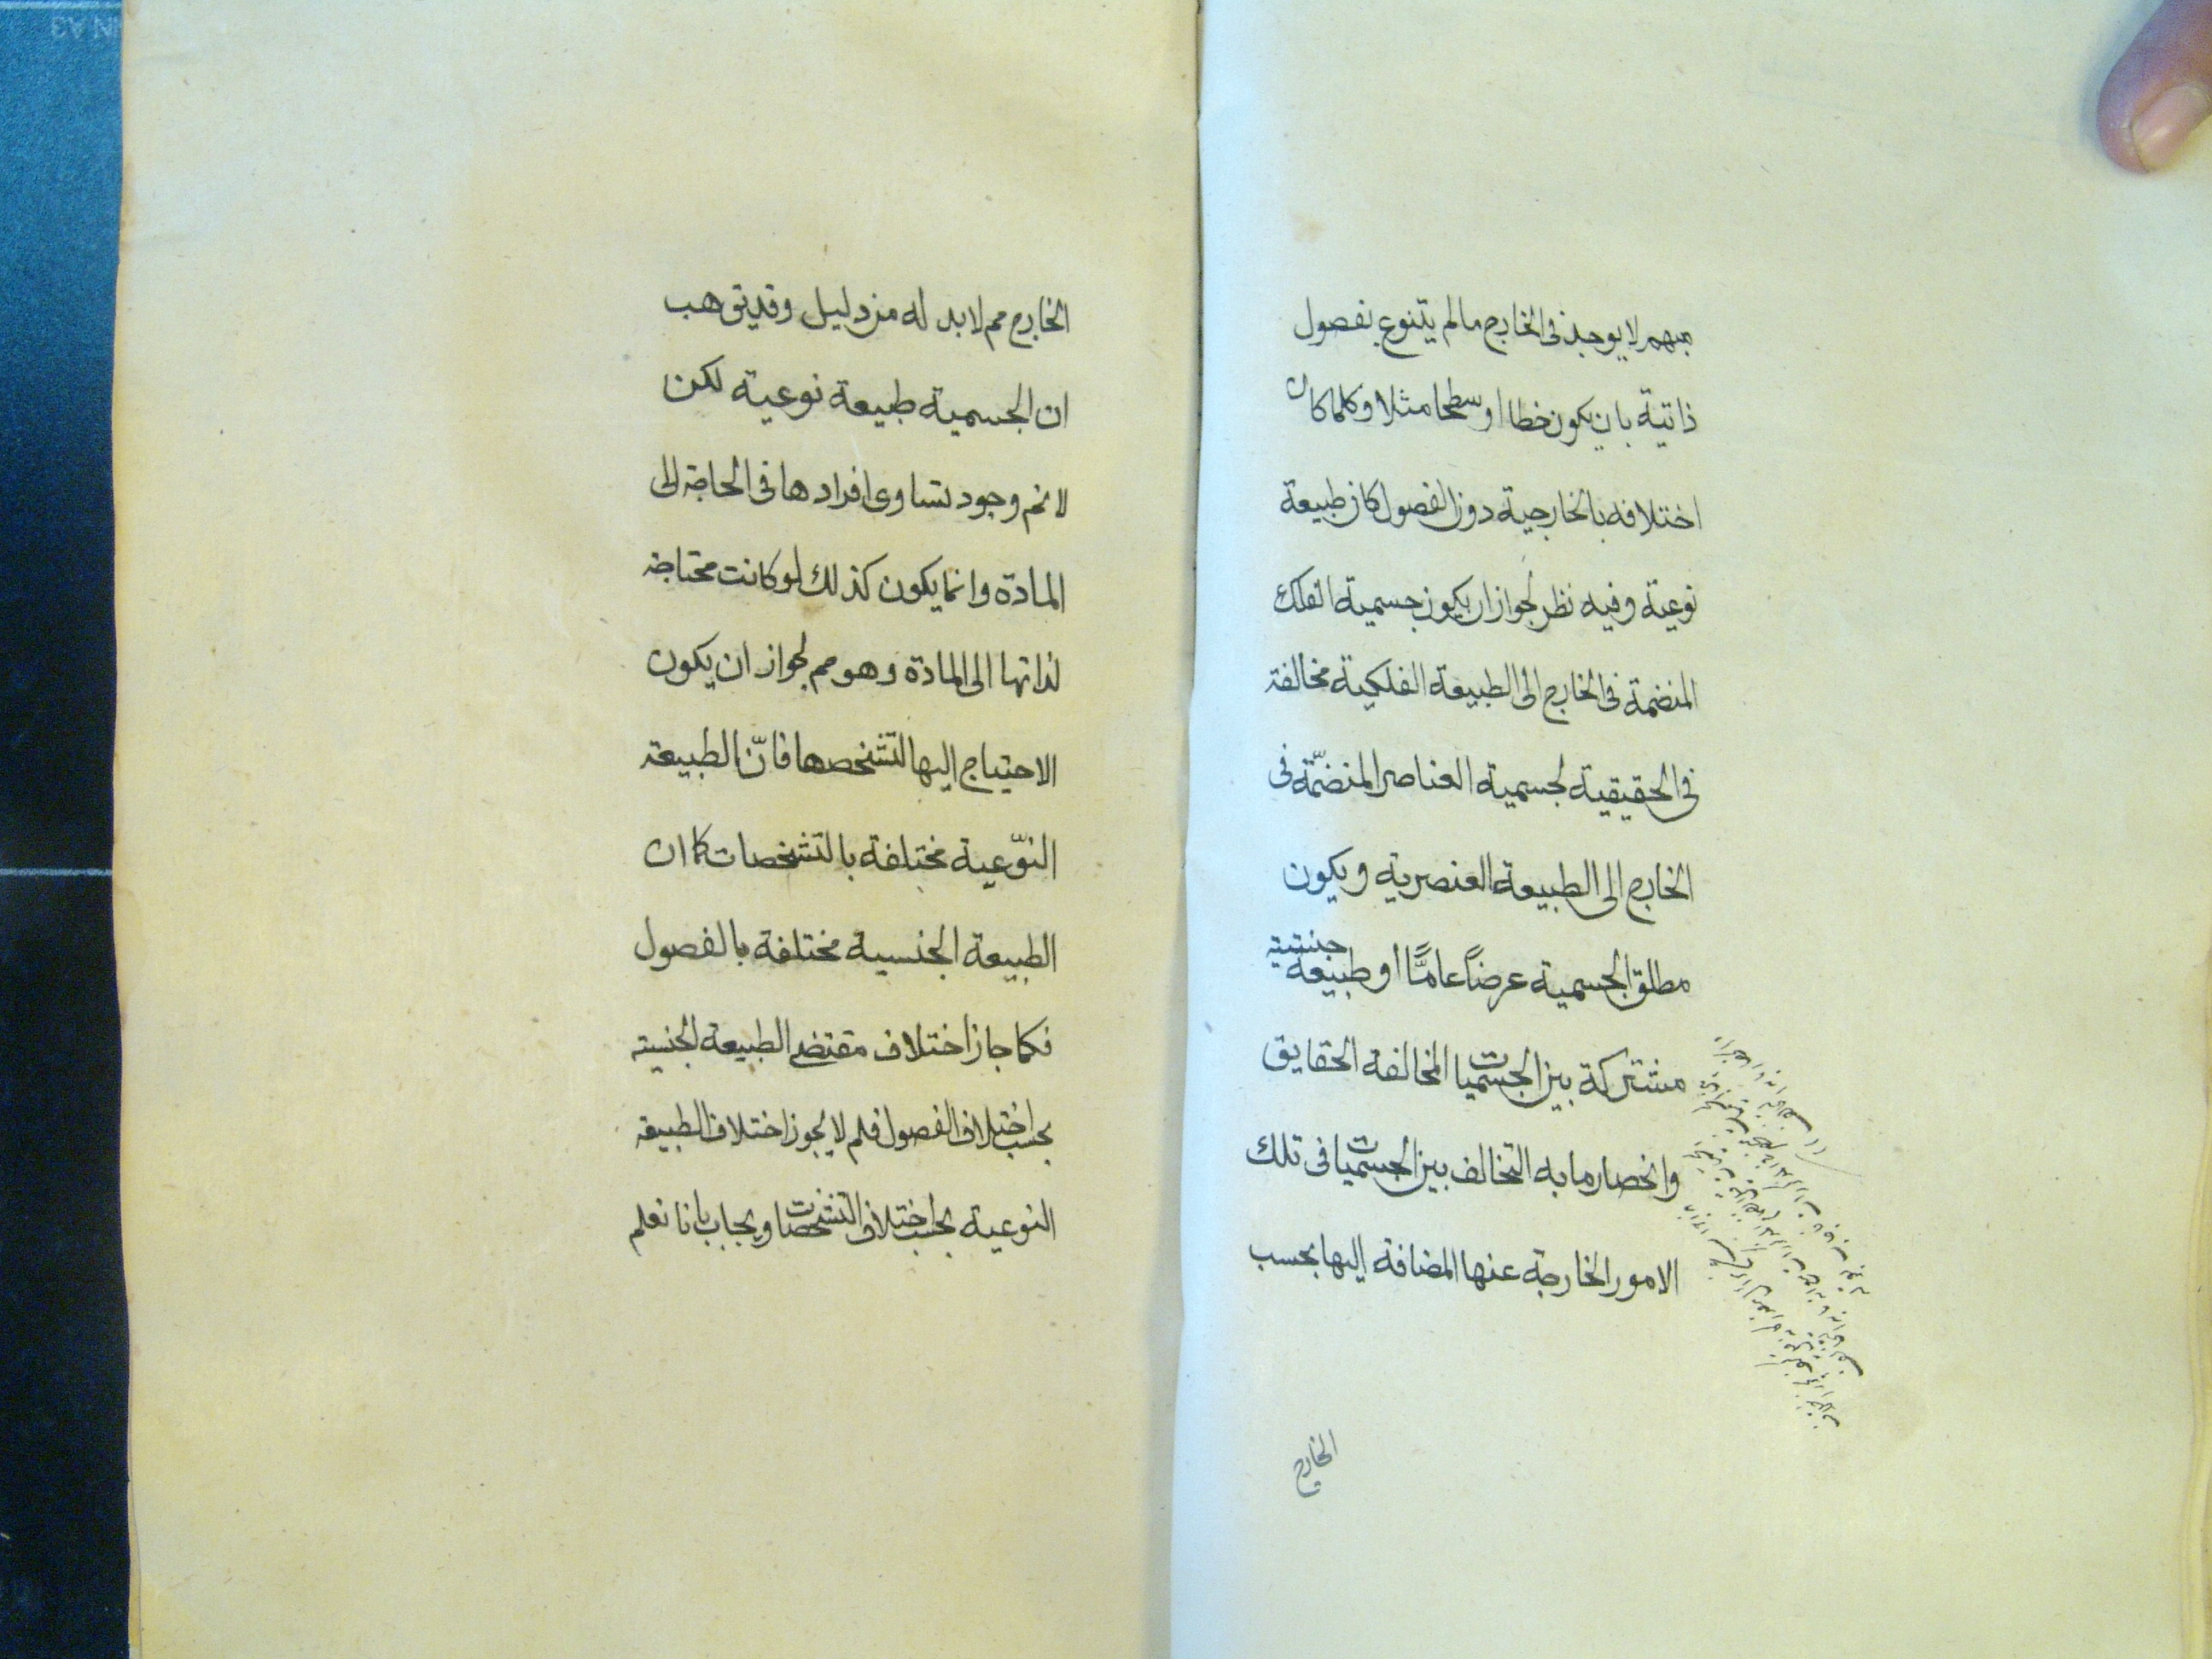 مبهم لا يوجد فى الخارج ما لم يتنوع بفصول
ذاتية بان يكون خطا او سطحا مثلا وكلما كان
اختلافه بالخارجية دون الفصول كان طبيعة
نوعية وفيه نظر لجواز ان يكون جسمية الفلك
المنضمة فى الخارج الى الطبيعة الفلكية مخالفة
فى الحقيقية لجسمية العناصر المنضمّة فى
الخارج الى الطبيعة العنصرية ويكون
مطلق الجسمية عرضاً عامًّا او طبيعة جنسية
مشتركة بين الجسميات المخالفة الحقايق
وانحصار ما به التخالف بين الجسميات فى تلك
الامور الخارجة عنها المضافة اليها بحسب
الخارج
الخارج مم لا بد له من دليل وقد يق هب
ان الجسمية طبيعة نوعية لكن
لا نم وجود تساوى افرادها فى الحاجة الى
المادة وانما يكون كذلك لو كانت محتاجة
لذاتها الى المادة وهو مم لجواز ان يكون
الاحتياج اليها لتشخصها فانّ الطبيعة
النوّعية مختلفة بالتشخصات كما ان
الطبيعة الجنسية مختلفة بالفصول
فكما جاز اختلاف مقتضى الطبيعة الجنسية
بحسب اختلاف الفصول فلم لا يجوز اختلاف الطبيعة
النوعية بحسب اختلاف التشخصات ويجاب بانا نعلم